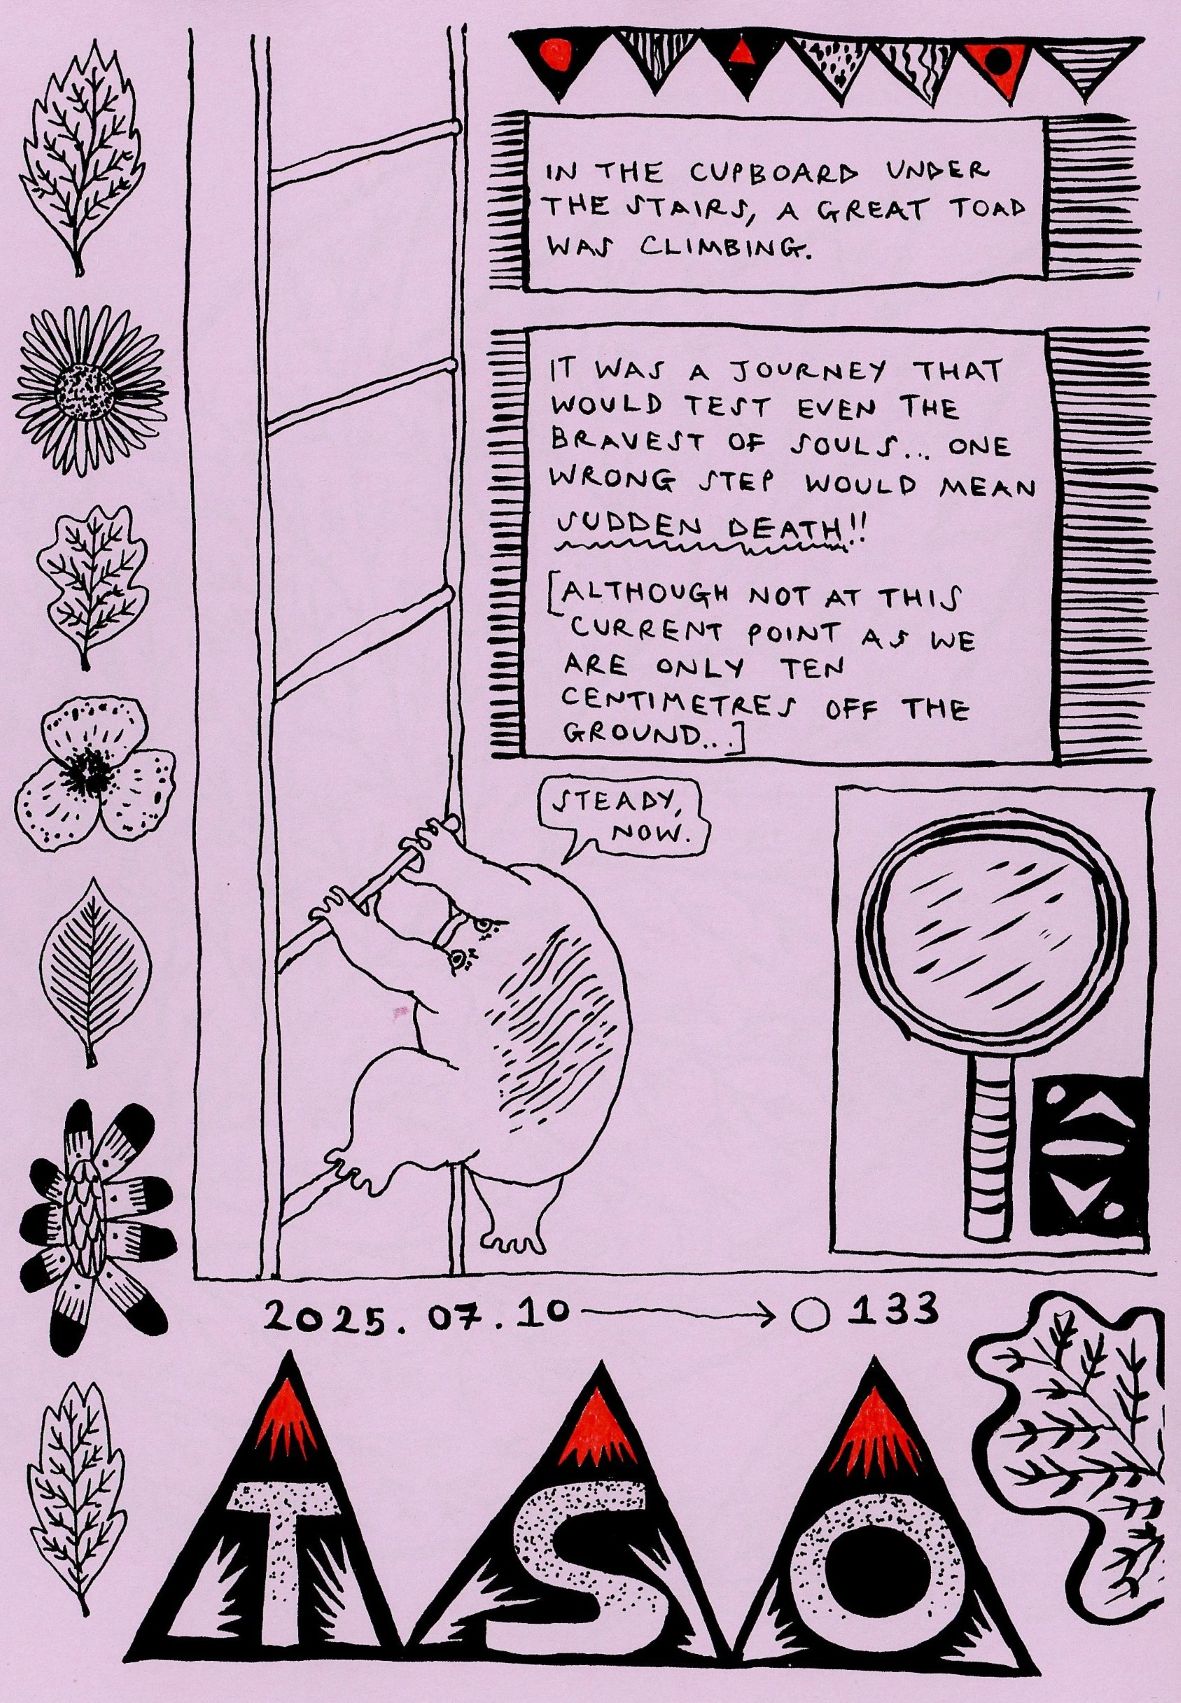 IN THE CUPBOARD UNDER
THE STAIRS, A GREAT TOAD
WAS CLIMBING.
IT WAS A JOURNEY THAT
WOULD TEST EVEN THE
BRAVEST OF SOULS... ONE
WRONG STEP WOULD MEAN
SUDDEN DEATH!!
[ALTHOUGH NOT AT THIS
CURRENT POINT AS WE
ARE ONLY TEN
CENTIMETRES OFF THE
GROUND...]
STEADY,
NOW.
2025.07.10 → ○ 133
TSO